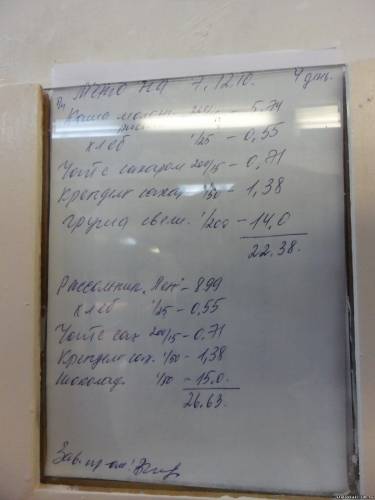 Меню на 7.12.10. 4 день.
Каша молочн. - 5,74
хлеб 1/25 - 0,55
Чай с сахаром 200/15 - 0,71
Крендель сахар. 1/50 - 1,38
Груша свеж. 1/200 - 14,0
22.38.
Рассольник "Лен" - 8,99
хлеб 1/25 - 0,55
Чай с сах 200/15 - 0,71
Крендель сах. 1/50 - 1,38
Шоколад 1/50 - 15.0.
26.63.
Зав. пр-ом: